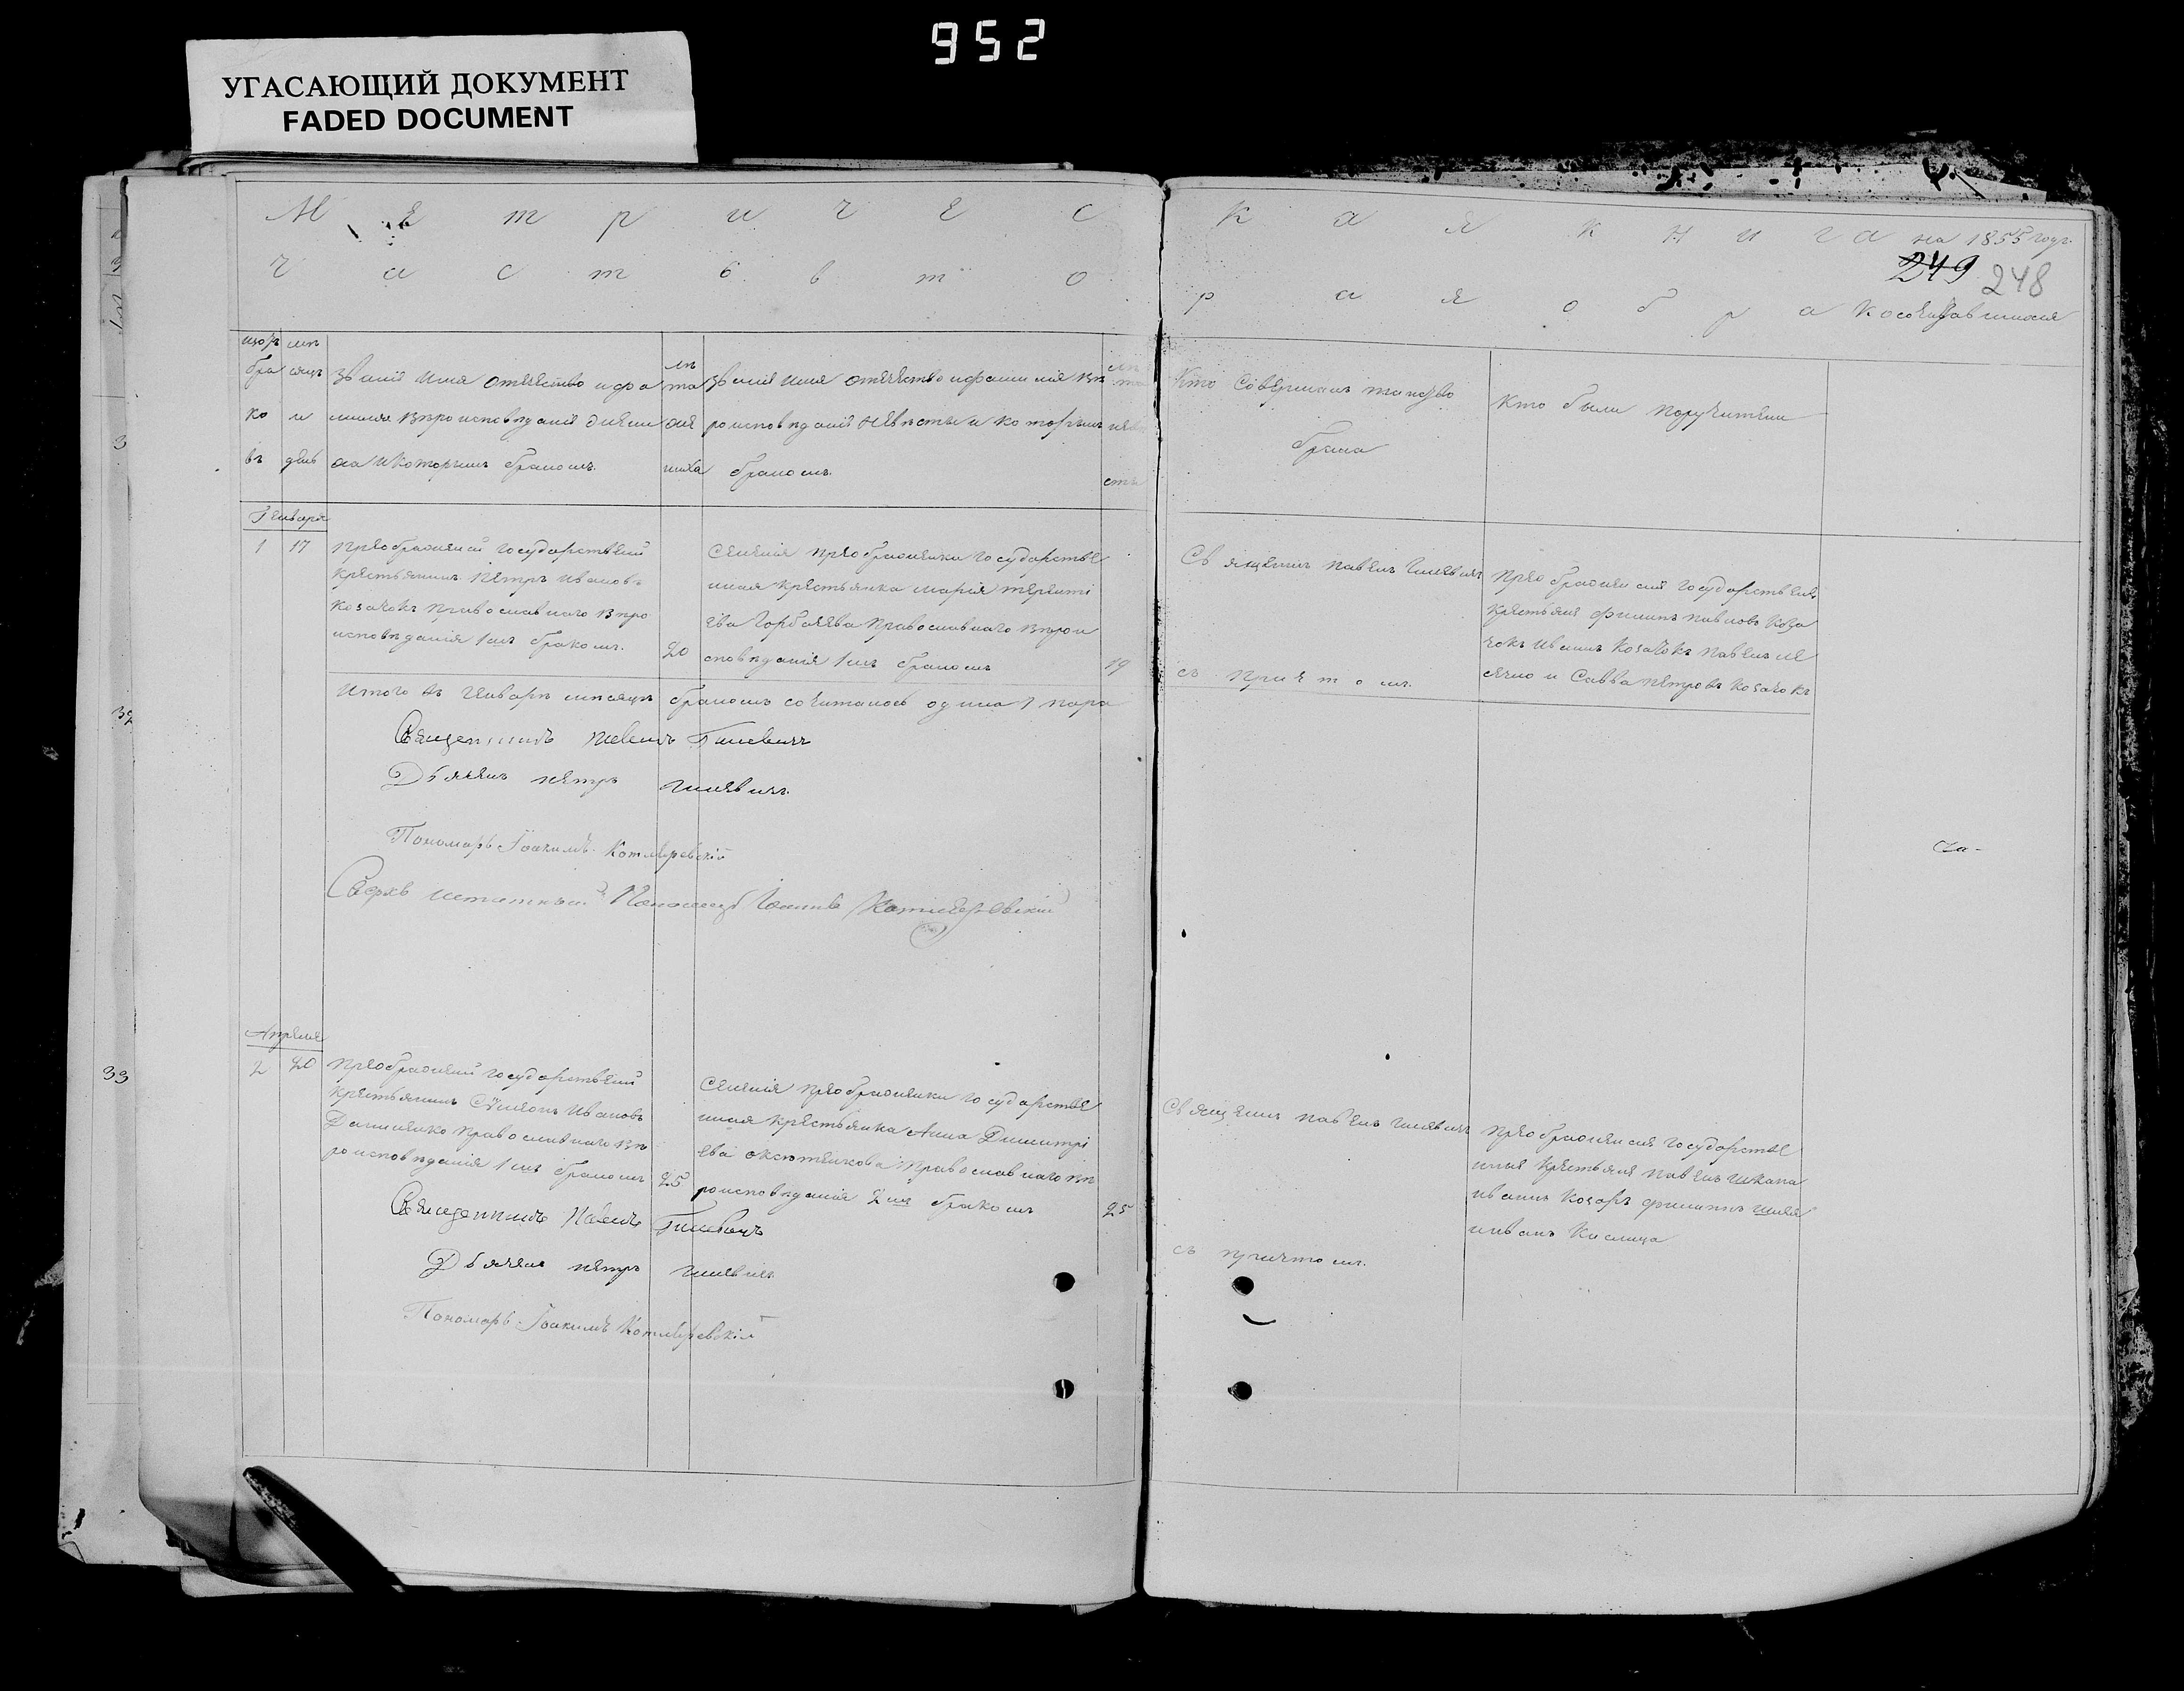 952
УГАСАЮЩИЙ ДОКУМЕНТ
FADED DOCUMENT
М е т р и ч е с к а я к н и г а на 1855 годъ.
249 248
ч а с т ь в т о р а я о б р а косочетавшихся
щотъ бра ко въ
мѣ сяцъ и день
Званіе имя отечество и фа
милія вѣроисповѣданіе
и которимъ бракомъ
лѣ та
Званіе имя отечество и фамилія вѣ
роисповѣданіе невѣсты и которымъ
бракомъ
Кто совершалъ таинство
брака
Кто были поручители
Генваря
1 17
Преображеній государственій
крестьянинъ Петръ Ивановъ
Козачокъ православнаго вѣро
исповѣданія 1мъ бракомъ.
20
Селенія Преображенки государстве
нная крестьянка Марія Теренті
ева Горбачева православнаго вѣрои
сповѣданія 1мъ бракомъ
19
Священикъ Павелъ Гилевичъ
съ причтомъ.
Преображенскія государствен
крестьяне Филипъ Павловъ Коза
чокъ Иванъ Козачокъ Павелъ
и Савва Петровъ Козачокъ
Итого въ генварѣ мѣсяцѣ бракомъ сочиталось одна 1 пара
Священникъ Павелъ Гилевичъ
Дьячекъ Петръ Гилевичъ
Пономарь Іоакимъ Котляревскій
Сверхъ штатный Пономарь Котляревскій
за-
Апреля
2 20
Преображеній государственій
крестьянинъ Сѵмеонъ Ивановъ
Данилко православнаго вѣ
роисповѣданія 1мъ бракомъ
25
Селенія Преображенки государстве
нная крестьянка Анна Димитрі
ева православнаго вѣ
роисповѣданія 2мъ бракомъ
25
Священикъ Павелъ Гилевичъ
съ причтомъ.
Преображенскія государстве
нныя крестьяне Павелъ Шкапа
Иванъ Козарь Филипъ
Иванъ Кислица
Священникъ Павелъ Гилевичъ
Дьячекъ Петръ Гилевичъ
Пономарь Іоакимъ Котляревскій
3
32
33